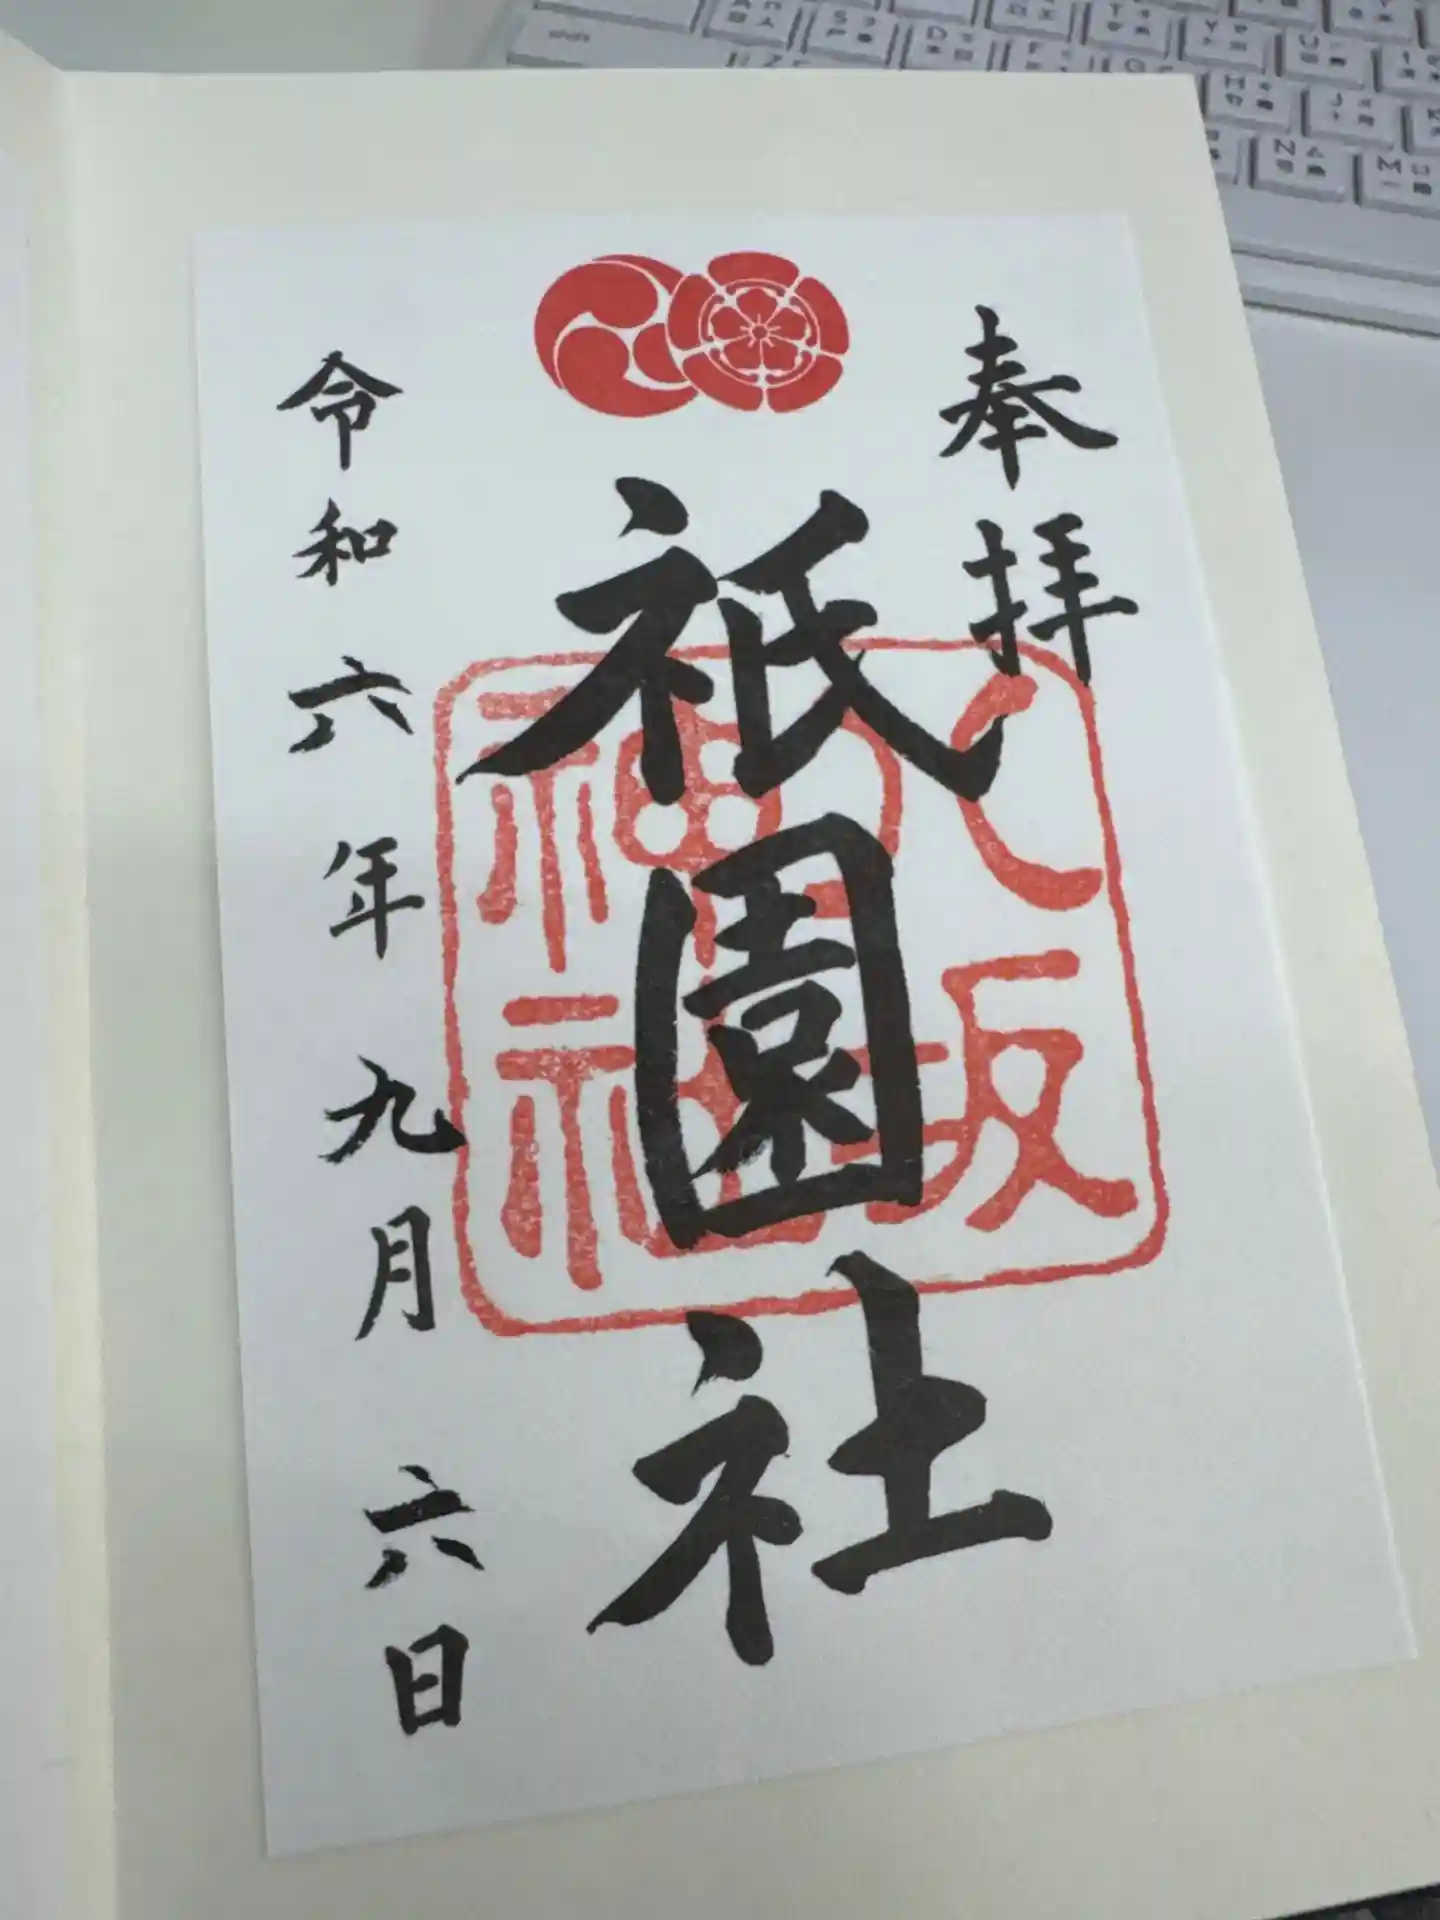 奉拝
祇園社
八坂
神社
令和六年九月六日